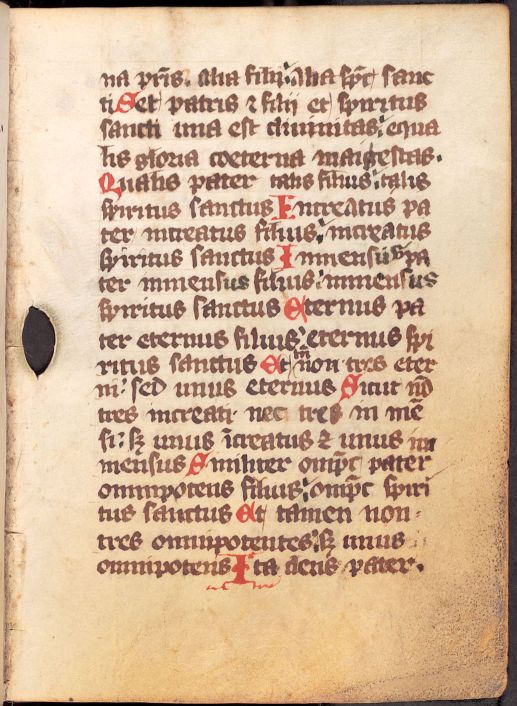 na pr̄is. alia filii: Alia sp̄c sanc
ti Set patris ⁊ filii et spiritus
sancti una est diuinitas: equa
lis gloria coeterna maigestas.
Qualis pater talis filius: talis
spiritus sanctus Increatus pa
ter increatus filius: increatus
spiritus sanctus Inmensus pa
ter inmensus filius: inmensus
spiritus sanctus Eternus pa
ter eternus filius: eternus spi
ritus sanctus Et tn̄ non tres eter
ni: sed unus eternus Sicut nō
tres increati nec tres in mē
si: sꝫ unus īcreatus ⁊ unus in
mensus Similiter omp̄c pater
omnipotens filius: omp̄c spiri
tus sanctus Et tamen non
tres omnipotentes: sꝫ unus
omnipotens Ita deus pater.